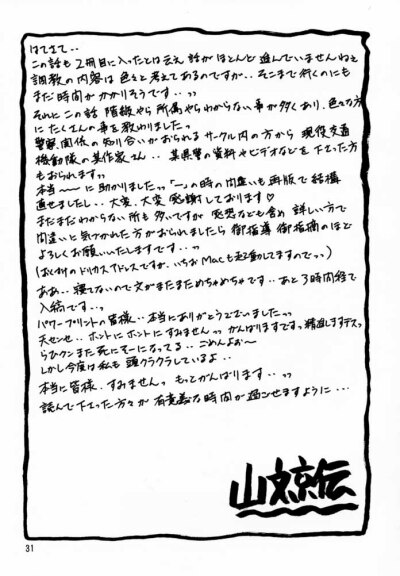 はてさて‥
この話も2冊目に入ったとは云え 話がほとんど進んでいませんねぇ
調教の内容は色々と考えてあるのですが‥そこまで行くのにも
まだ時間がかかりそうです‥ッッ
それと この話 階級やら所属やらわからない事が多くあり、色々な方
にたくさんの事を教わりましたっ
警察関係の知り合いがおられるサークル内の方から 現役交通
機動隊の某作家さん‥ 某県警の資料やビデオなどを下さった方
もおられますッ
本当〜〜に助かりましたッッ「一」の時の間違いも再版で結構
直せましたし‥大変、大変 感謝しております♡
まだまだわからない所も多いですが 感想なども含め 詳しい方で
間違いと気づかれた方がおられましたら 御指導 御指摘のほど
よろしくお願いいたしますです‥ッ
ああ‥寝てないので文がまたまためちゃめちゃです‥あと3時間程で
入稿です‥ッ
パワープリントの皆様‥本当にありがとうございましたーッ
天センセ‥ホントにホントにすみませんッッ がんばりますですっ精進しますデスッ
しかし今度は私も 頭クラクラしているよ‥
本当に皆様、すみませんっ もっとがんばります‥ッッ
読んで下さった方々が 有意義な時間が過ごせますように‥‥
山文京伝
31